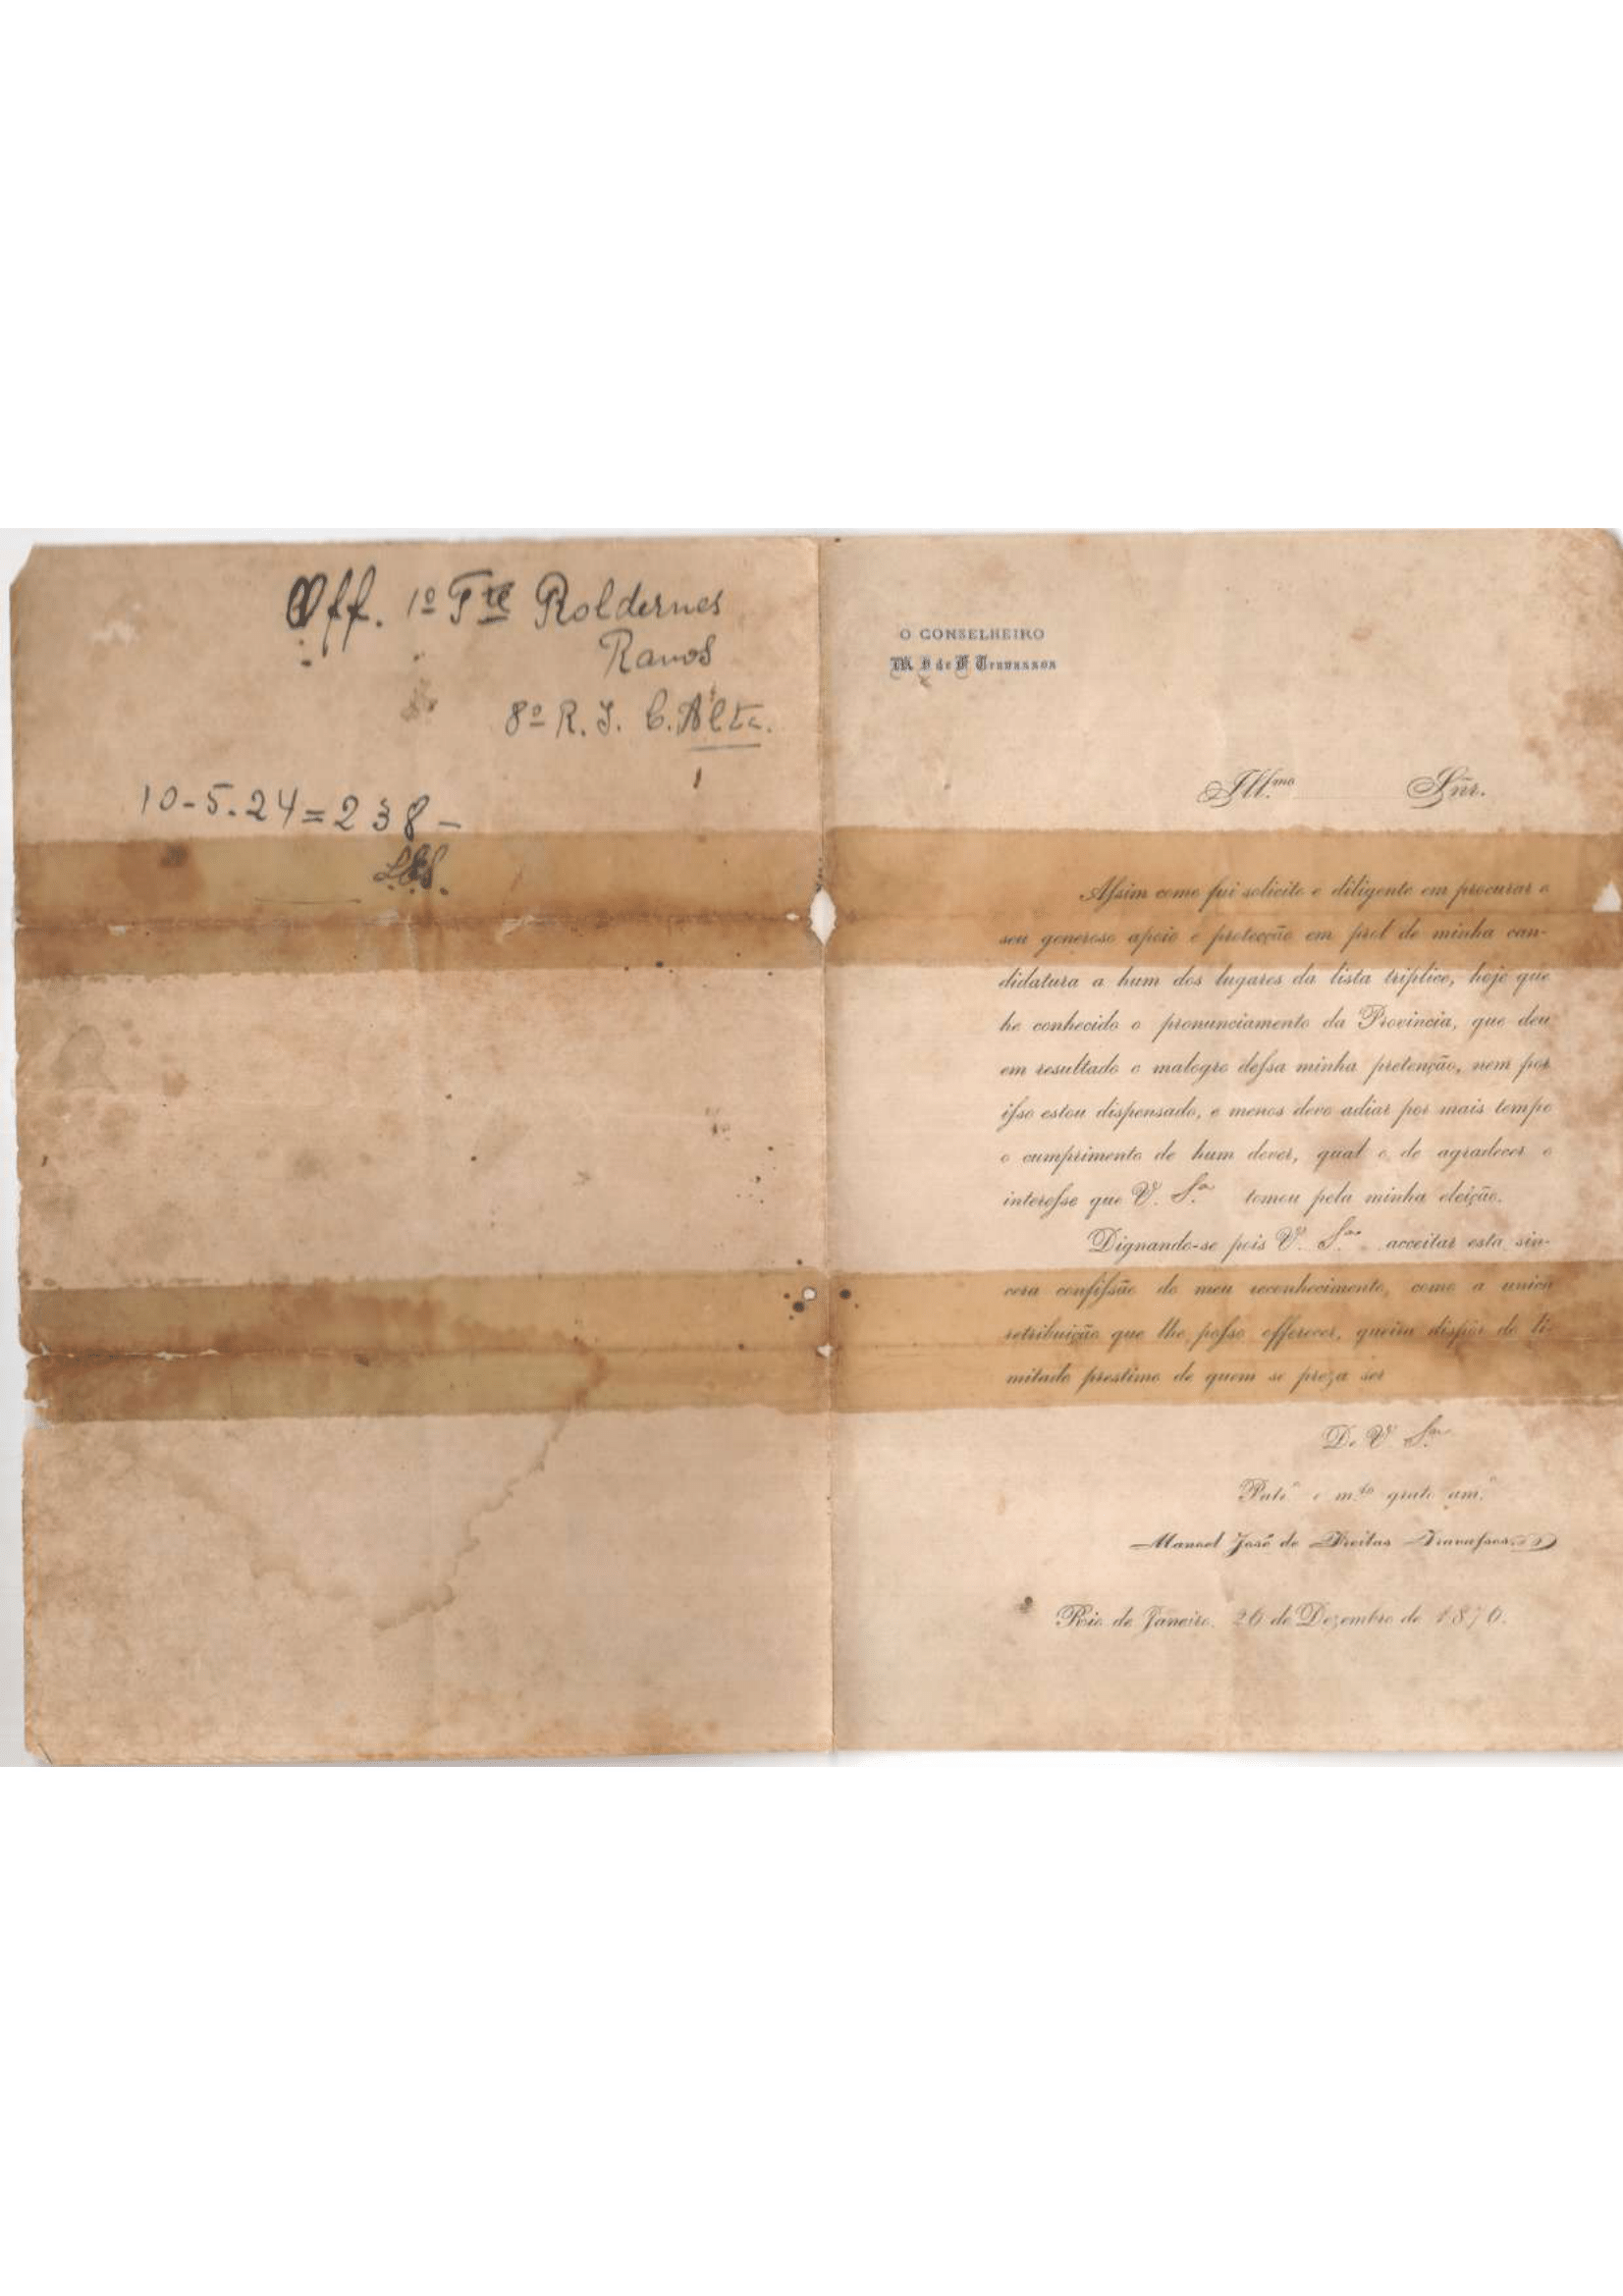 Off. 1º Tte Roldernes
Ramos
8º R. I. C. Alta.
10-5.24=238-
O CONSELHEIRO
M. J de F Travassos
Ill.mo Sñr.
Aſsim como fui solicito e diligente em procurar o
seu generoso apoio e protecção em prol de minha can-
didatura a hum dos lugares da lista triplice, hoje que
he conhecido o pronunciamento da Provincia, que deu
em resultado o malogro deſsa minha pretenção, nem por
iſso estou dispensado, e menos devo adiar por mais tempo
o cumprimento de hum dever, qual o de agradecer o
intereſse que V. S.a tomou pela minha eleição.
Dignando-se pois V. S.a acceitar esta sin-
cera confiſsão do meu reconhecimento, como a unica
retribuição que lhe poſso offerecer, queira dispôr do li-
mitado prestimo de quem se preza ser
De V S.a
Patr.º e m.to grato am.º
Manoel José de Freitas Travaſsos
Rio de Janeiro, 26 de Dezembro de 1870.